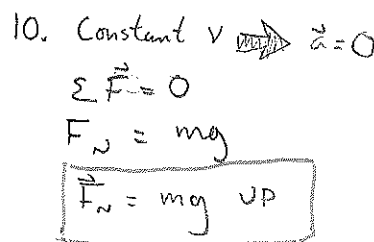 10. Constant v ⇒ a⃗ = 0
Σ F⃗ = 0
F_N = mg
F⃗_N = mg UP